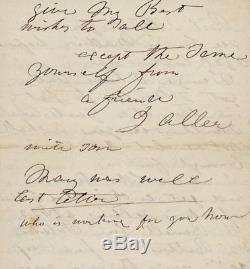 give My Best
wishes to all
except the Same
yourself from
a friend
J Aller
write soon
Mary was well
last letter
who is working for you Now